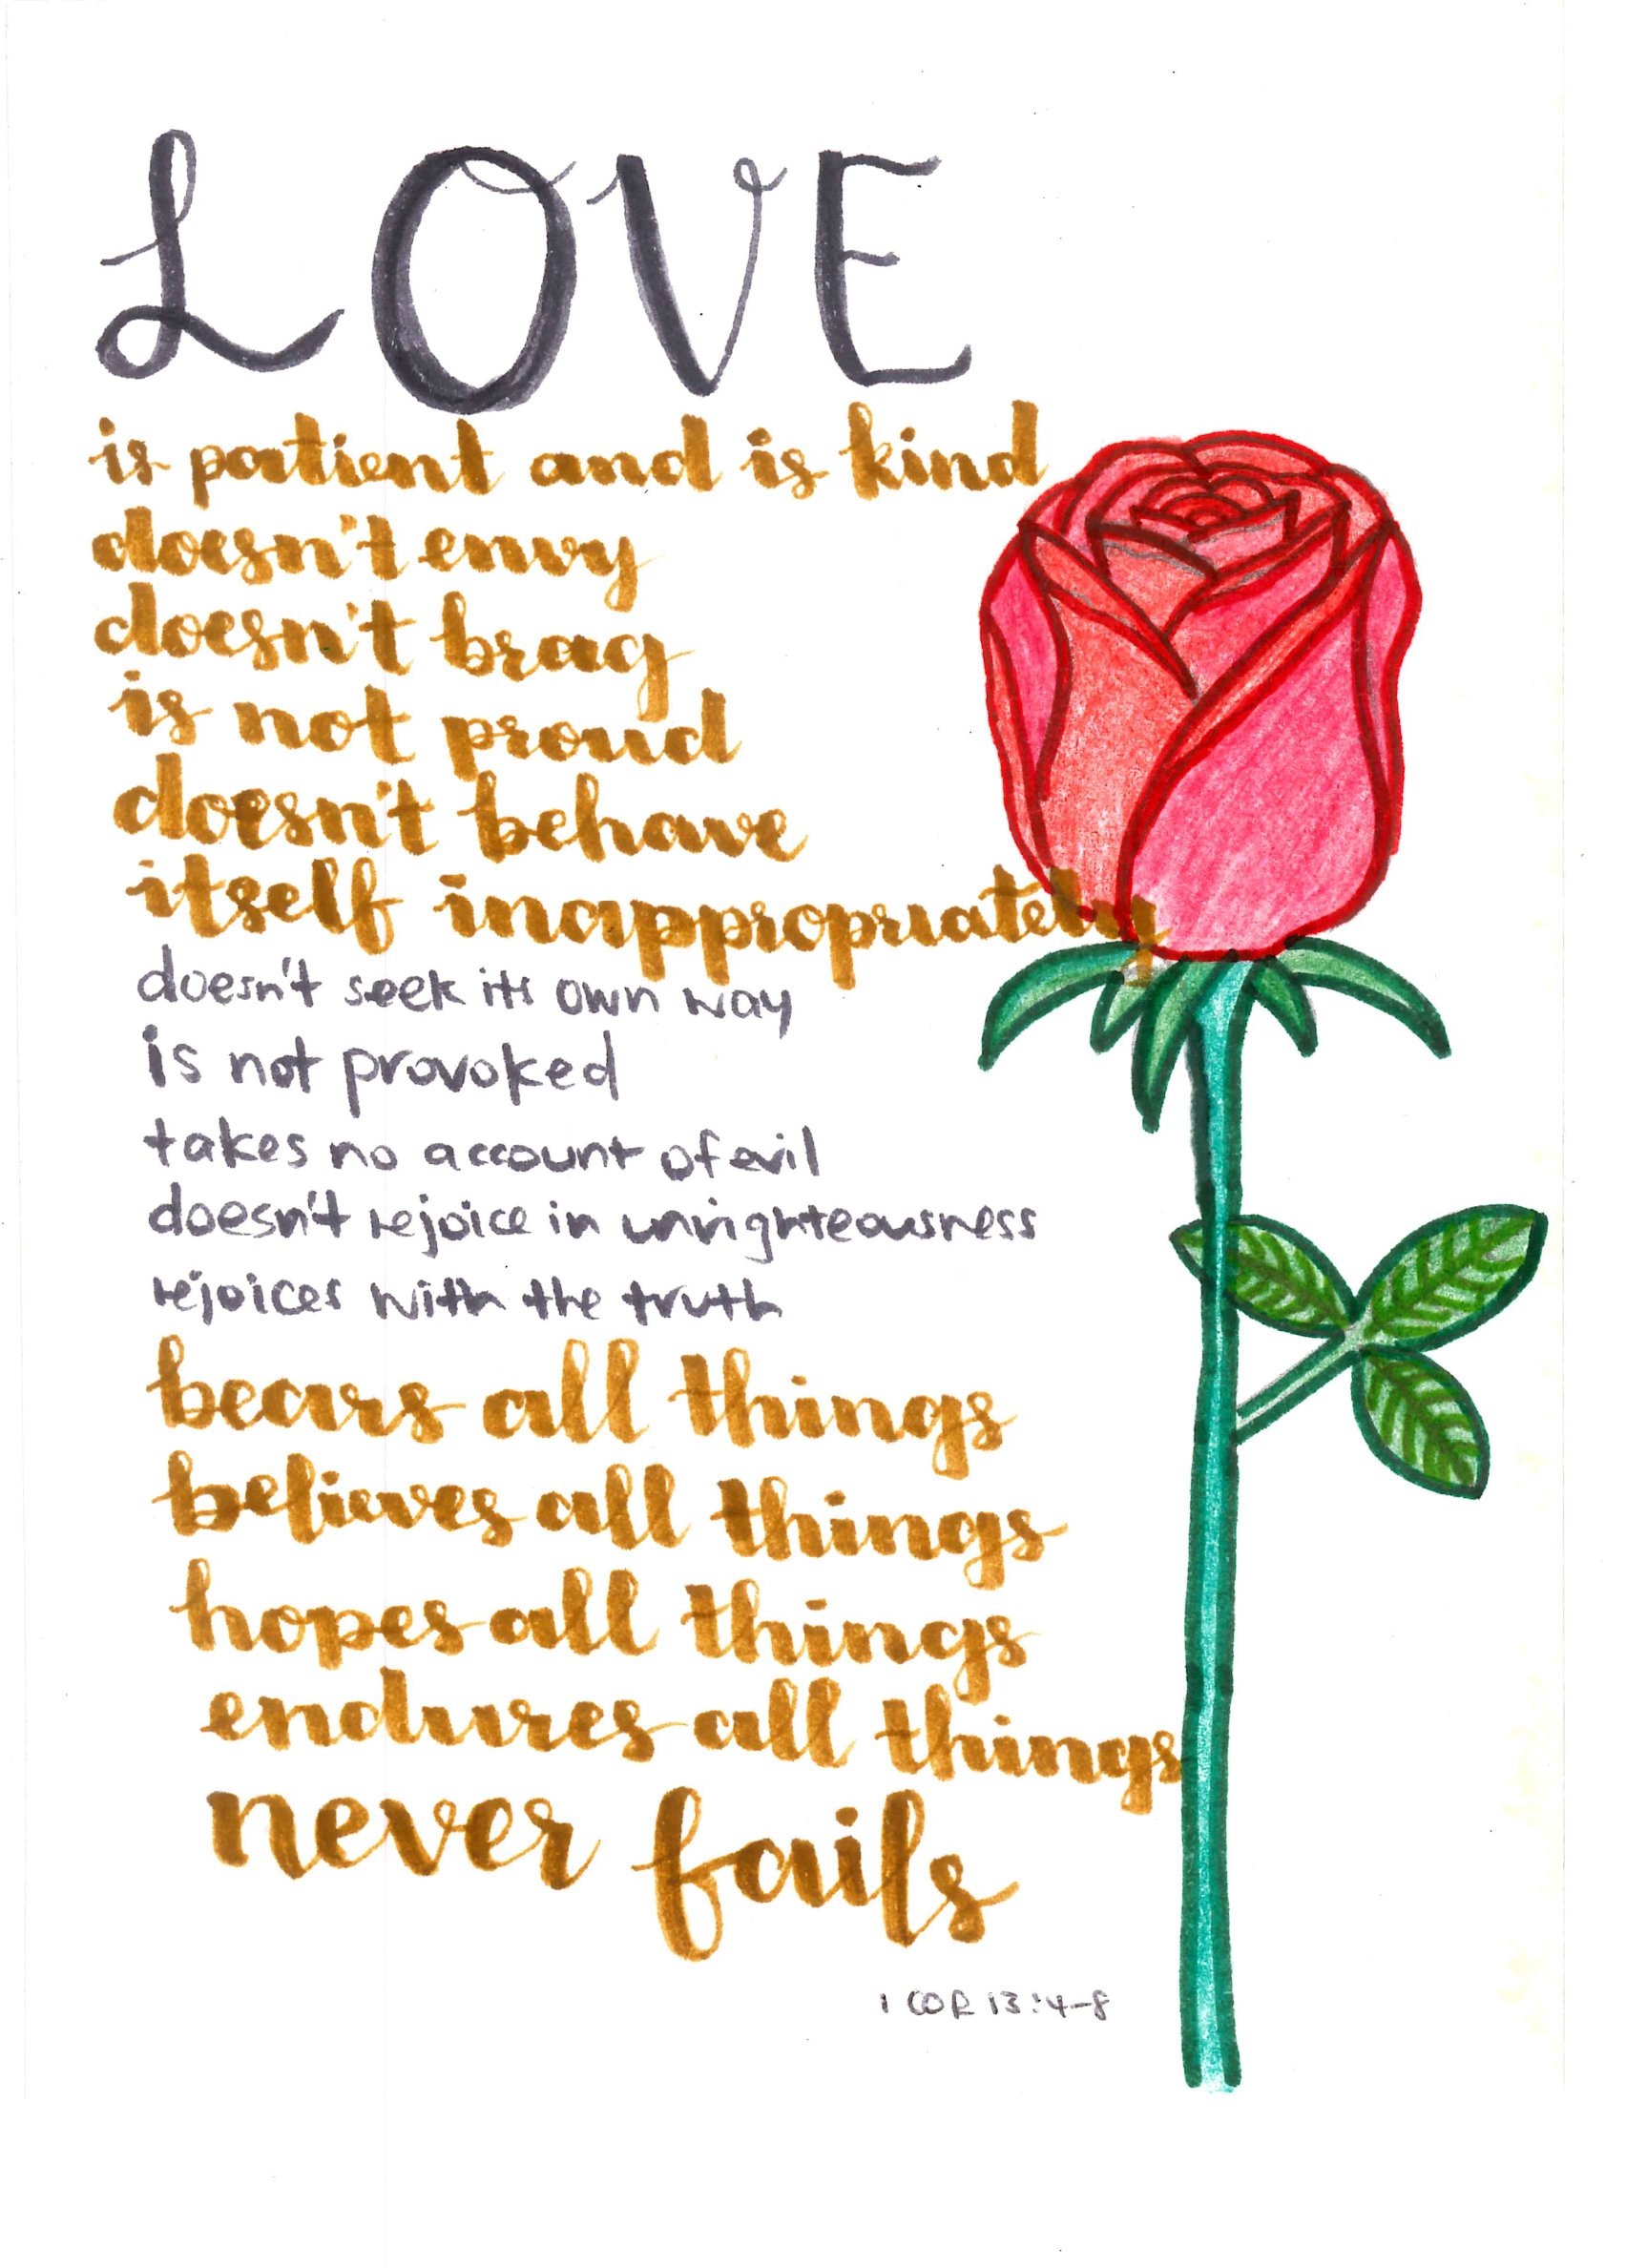 LOVE
is patient and is kind
doesn't envy
doesn't brag
is not proud
doesn't behave
itself inappropriately
doesn't seek its own way
is not provoked
takes no account of evil
doesn't rejoice in unrighteousness
rejoices with the truth
bears all things
believes all things
hopes all things
endures all things
never fails
1 COR 13:4-8